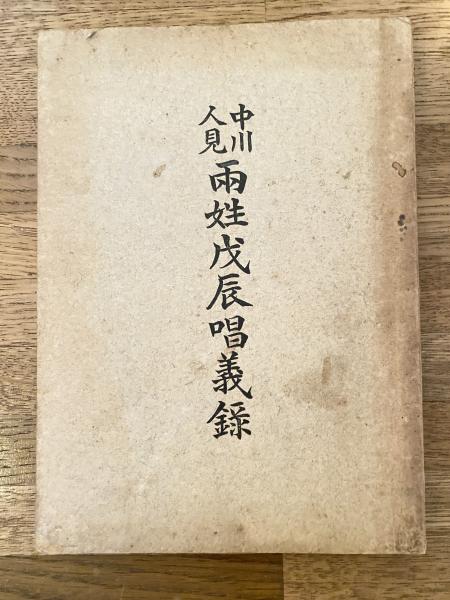 中川
人見
兩姓戊辰唱義錄